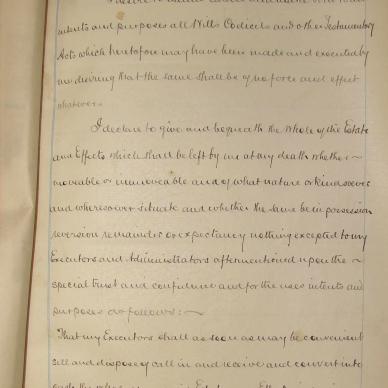 intents and purposes all Wills Codicils and other Testamentary
Acts which heretofore may have been made and executed by
me desiring that the same shall be of no force and effect
whatever.
I declare to give and bequeath the whole of the Estate
and Effects which shall be left by me at my death whether
moveable or immoveable and of what nature or kind soever
and wheresoever situate and whether the same be in possession
reversion remainder or expectancy nothing excepted to my
Executors and Administrators aftermentioned upon the
special trust and confidence and for the uses intents and
purposes as follows:
That my Executors shall as soon as may be convenient
sell and dispose of call in and receive and convert into